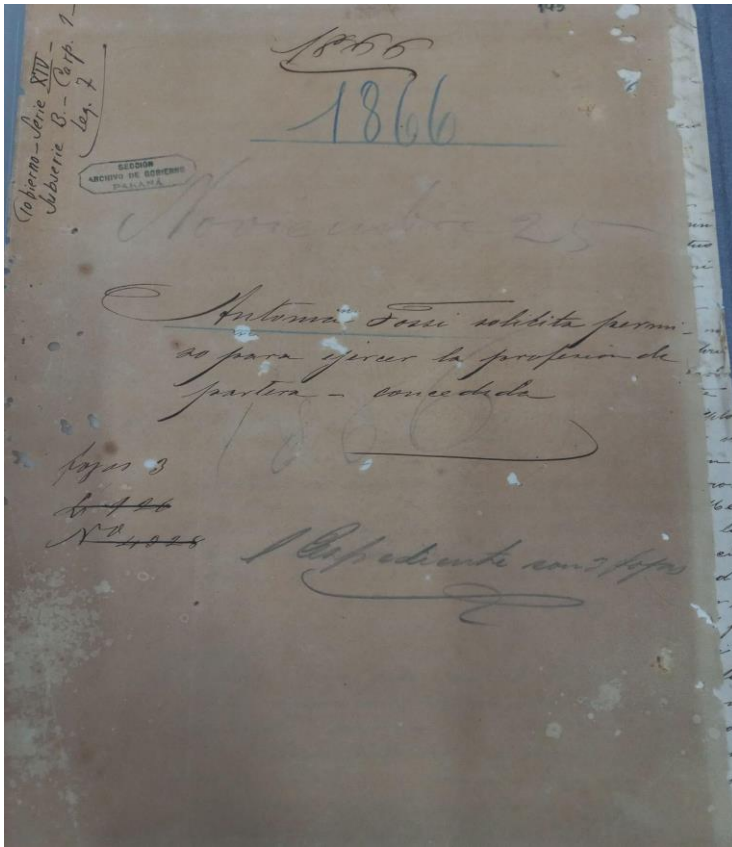 145
Gobierno - Serie XIV -
Subserie B. - Carp. 1 -
Leg. 7
1866
1866
SECCIÓN
ARCHIVO DE GOBIERNO
PANAMÁ
Noviembre 25
Antonia Fossi solicita permi-
so para ejercer la profesion de
partera - concedida
1866
fojas 3
L 126
Nº 4028
1 Espediente con 3 fojas